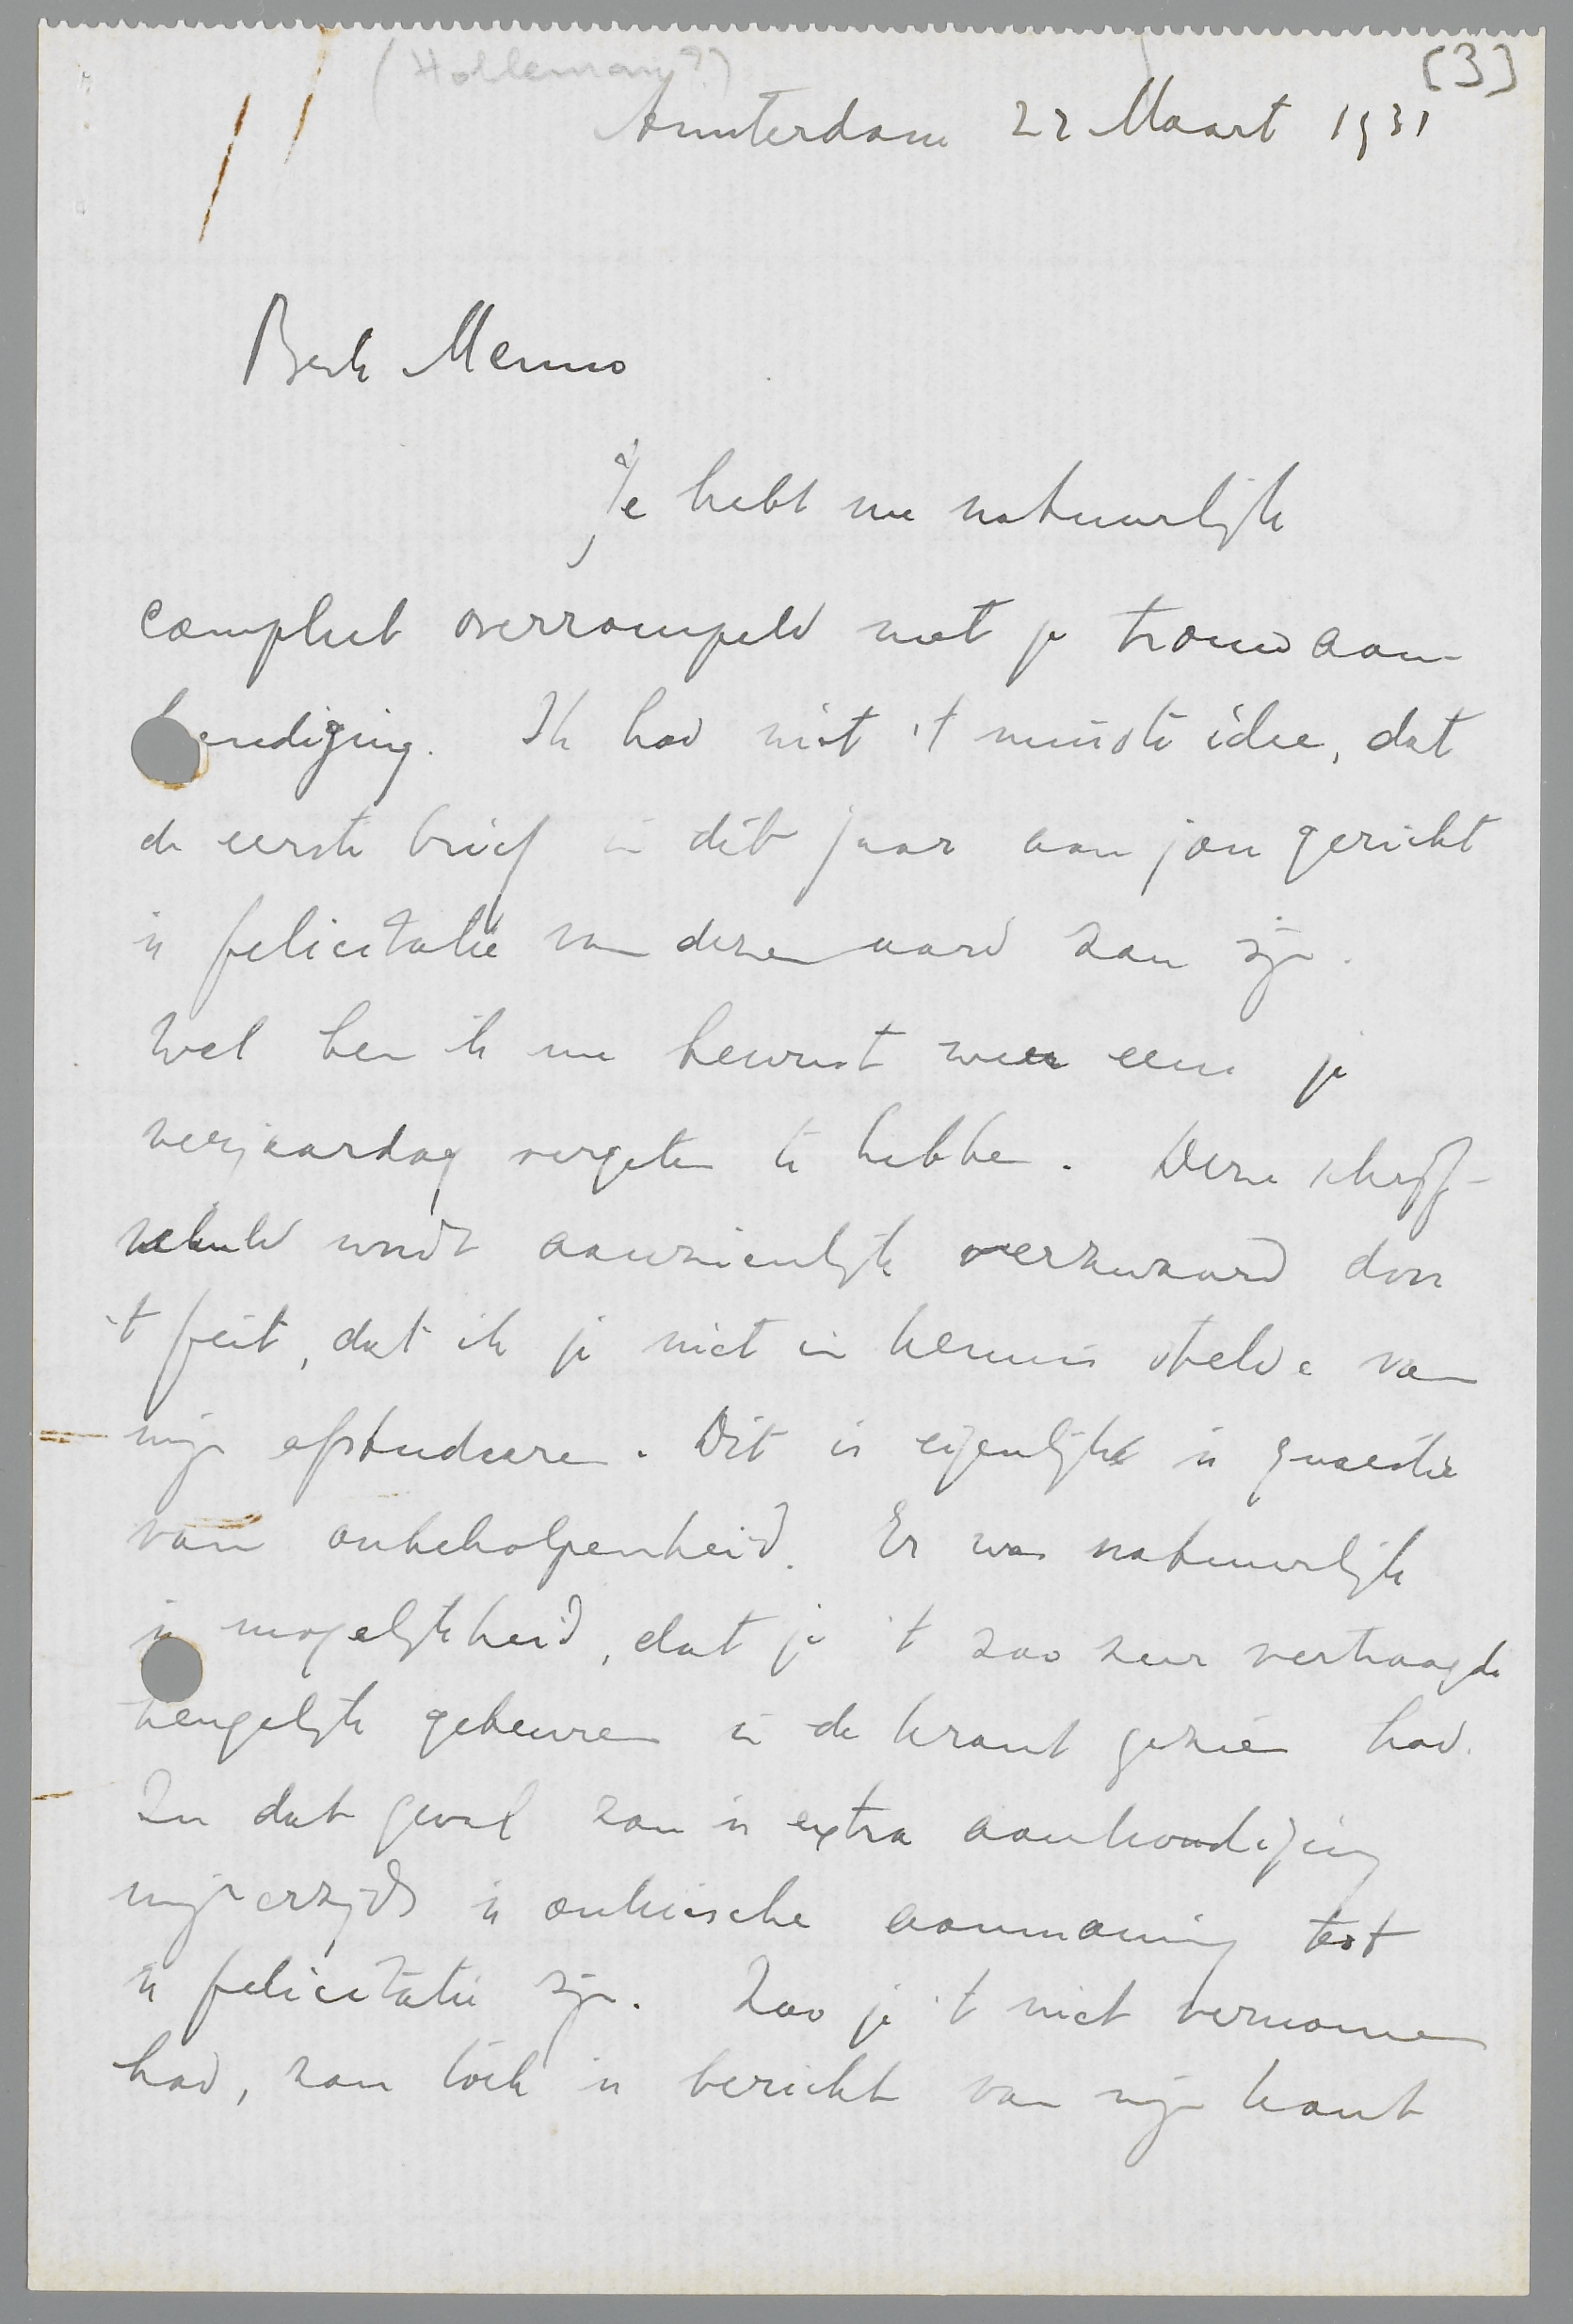 (Holleman?)
(3)
Amsterdam 22 Maart 1931
Beste Menno
Je hebt me natuurlijk
compleet overrompeld met je trouwaan-
kondiging. Ik had niet 't minste idee, dat
de eerste brief in dit jaar aan jou gericht
'n felicitatie van dezen aard zou zijn.
Wel ben ik me bewust weer eens je
verjaardag vergeten te hebben. Deze schrijf-
schuld wordt aanzienlijk verzwaard door
't feit, dat ik je niet in kennis stelde van
mijn afstudeeren. Dit is eigenlijk 'n quaestie
van onbeholpenheid. Er was natuurlijk
'n mogelijkheid, dat je 't zoo zeer vertraagde
heugelijk gebeuren in de krant gezien had.
In dat geval zou 'n extra aankondiging
mijnerzijds 'n onkiesche aanmaning tot
'n felicitatie zijn. Zoo je 't niet vernomen
had, zou toch 'n bericht van mijn kant